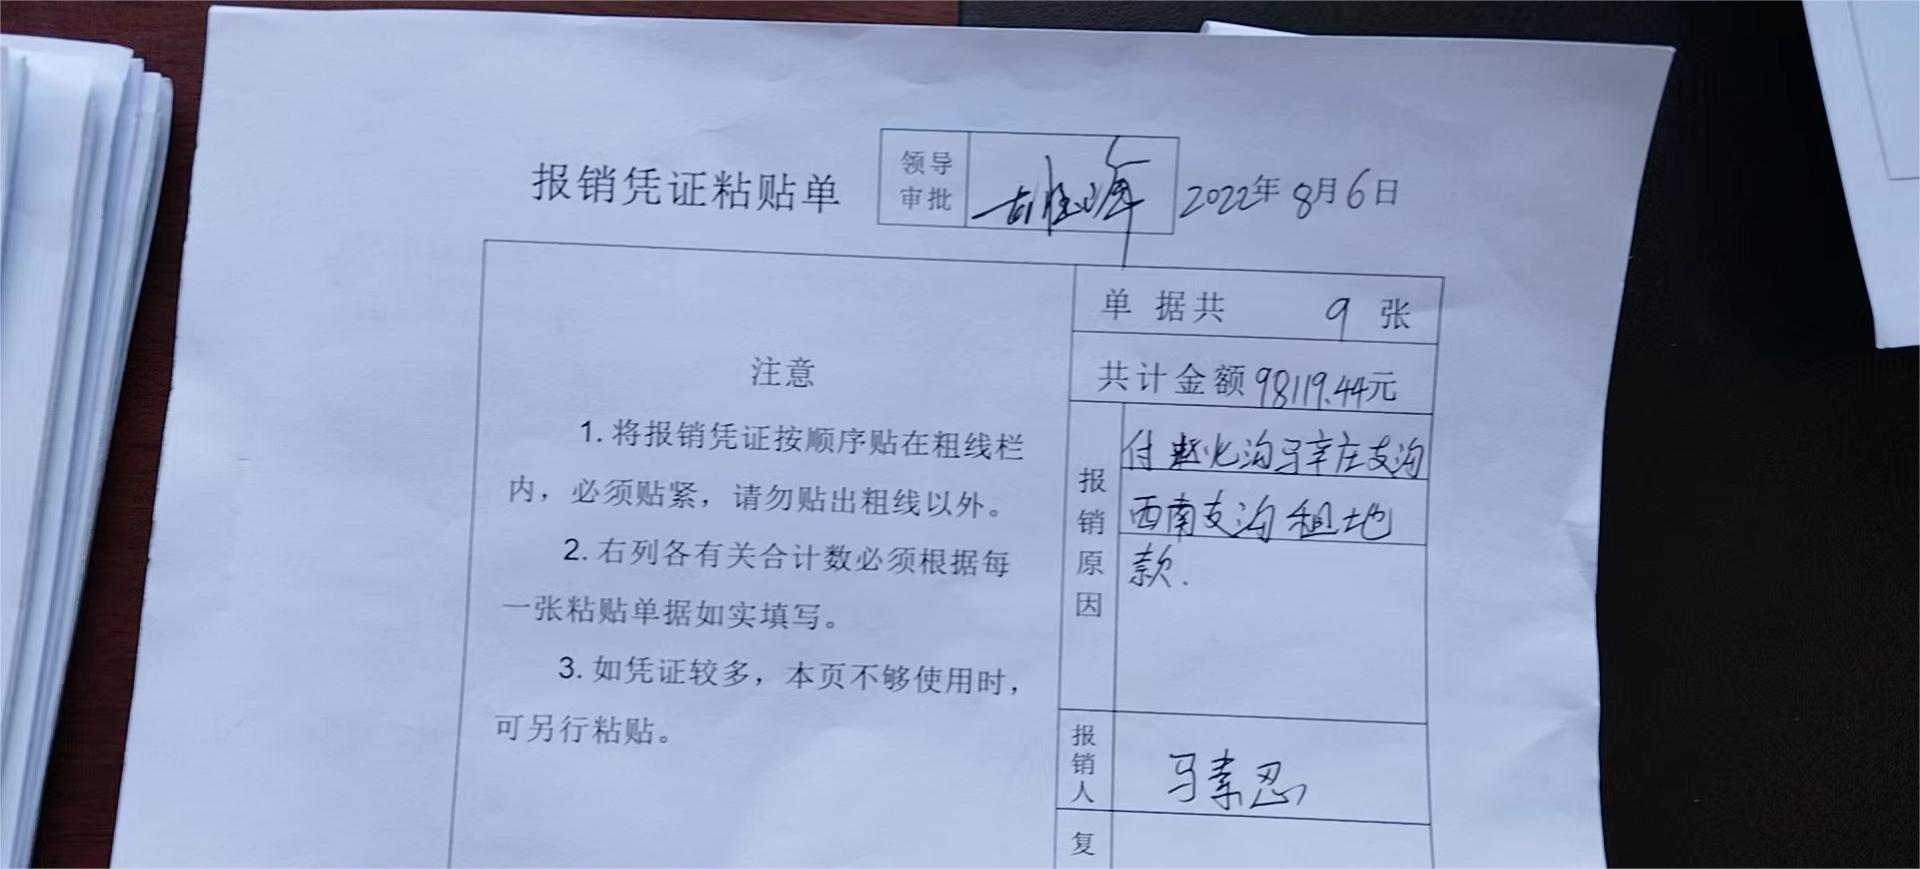 报销凭证粘贴单
领导
审批
2022年8月6日
单据共 9 张
共计金额98119.44元
注意
1. 将报销凭证按顺序贴在粗线栏
内，必须贴紧，请勿贴出粗线以外。
2. 右列各有关合计数必须根据每
一张粘贴单据如实填写。
3. 如凭证较多，本页不够使用时，
可另行粘贴。
报销原因
付赵北沟马辛庄支沟
西南支沟租地
款.
报销人
马素忍
复